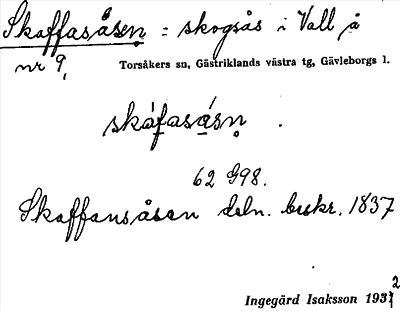 Skaffasåsen = skogsås i Vall å
nr 9,
Torsåkers sn, Gästriklands västra tg, Gävleborgs l.
skáfasásn .
62 G98.
Skaffansåsen deln. beskr. 1837
Ingegärd Isaksson 1932